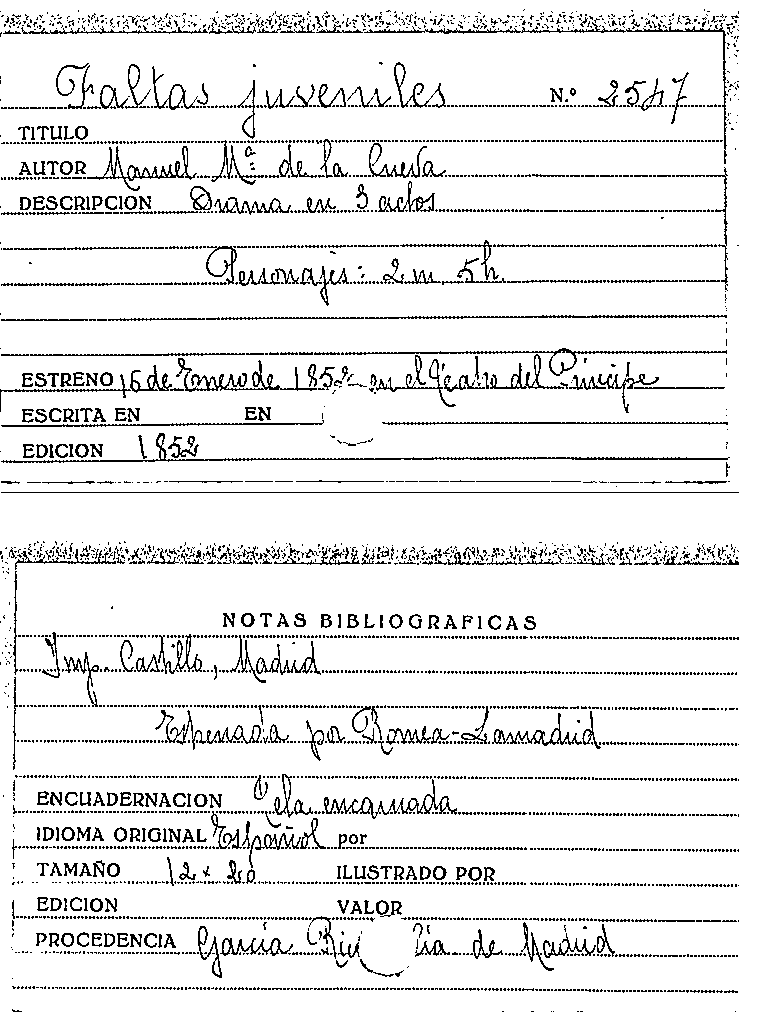 Faltas juveniles N.º 2547
TITULO
AUTOR Manuel Mª de la Cueva
DESCRIPCION Drama en 3 actos
Personajes: 2 m. 5 h.
ESTRENO 16 de Enero de 1852 en el Teatro del Principe
ESCRITA EN EN
EDICION 1852
NOTAS BIBLIOGRAFICAS
Imp. Castillo, Madrid
por Romea-Lamadrid
ENCUADERNACION Tela encarnada
IDIOMA ORIGINAL Español por
TAMAÑO 12 x 20 ILUSTRADO POR
EDICION VALOR
PROCEDENCIA García de Madrid